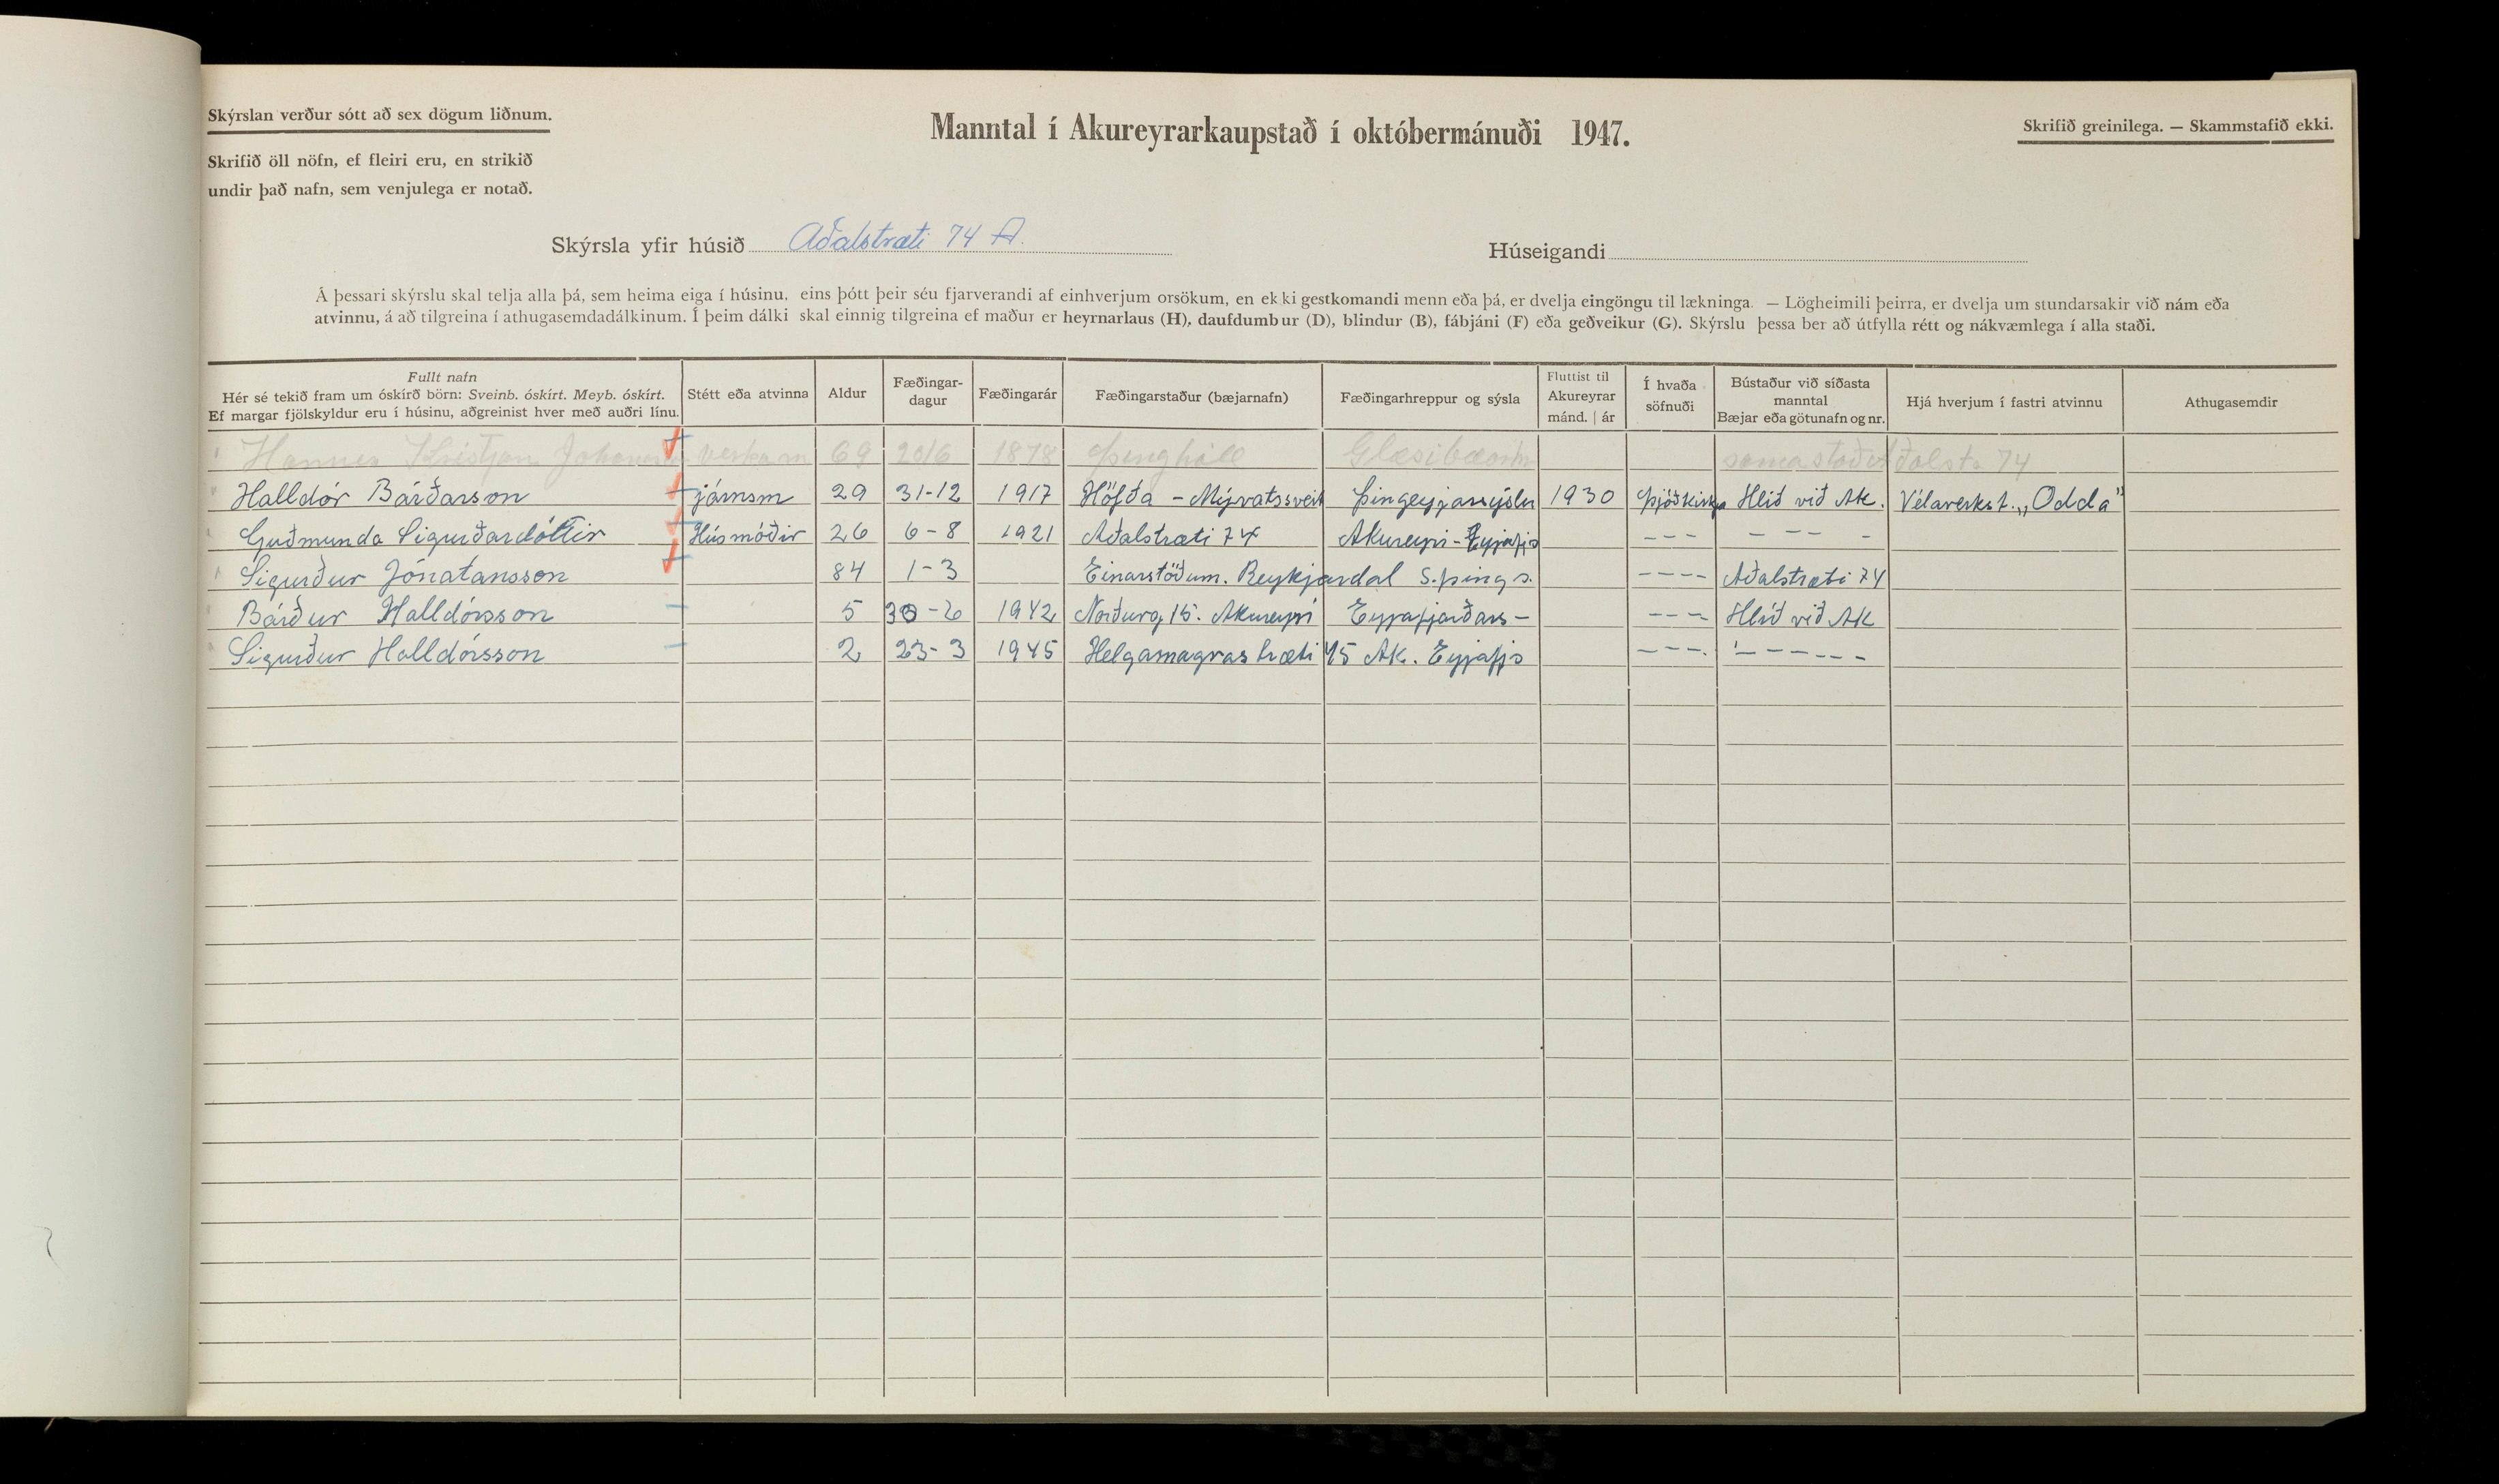 Skýrslan verður sótt að sex dögum liðnum.
Skrifið öll nöfn, ef fleiri eru, en strikið
undir það nafn, sem venjulega er notað.
Manntal í Akureyrarkaupstað í októbermánuði 1947.
Skrifið greinilega. — Skammstafið ekki.
Skýrsla yfir húsið Aðalstræti 74 A.
Húseigandi
Á þessari skýrslu skal telja alla þá, sem heima eiga í húsinu, eins þótt þeir séu fjarverandi af einhverjum orsökum, en ekki gestkomandi menn eða þá, er dvelja eingöngu til lækninga. — Lögheimili þeirra, er dvelja um stundarsakir við nám eða
atvinnu, á að tilgreina í athugasemdadálkinum. Í þeim dálki skal einnig tilgreina ef maður er heyrnarlaus (H), daufdumbur (D), blindur (B), fábjáni (F) eða geðveikur (G). Skýrslu þessa ber að útfylla rétt og nákvæmlega í alla staði.
Fullt nafn
Hér sé tekið fram um óskírð börn: Sveinb. óskírt. Meyb. óskírt.
Ef margar fjölskyldur eru í húsinu, aðgreinist hver með auðri línu.
Stétt eða atvinna
Aldur
Fæðingar-
dagur
Fæðingarár
Fæðingarstaður (bæjarnafn)
Fæðingarhreppur og sýsla
Fluttist til
Akureyrar
mánd. | ár
Í hvaða
söfnuði
Bústaður við síðasta
manntal
Bæjar eða götunafn og nr.
Hjá hverjum í fastri atvinnu
Athugasemdir
Hannes Kristján verkam 69 20/6 1878 Glæsibæarhr samastað Aðalstr 74
Halldór Bárðarson járnsm 29 31-12 1917 Höfða - Mývatssveit Þingeyjarsýslu 1930 Þjóðkirkja Hlíð við Ak. Vélaverkst. „Odda"
Guðmunda Sigurðardóttir Húsmóðir 26 6-8 1921 Aðalstræti 74 Akureyri - Eyjafjs --- - -- -
Sigurður Jónatansson 84 1-3 Einarstöðum. Reykjardal S.þing s. ---- Aðalstræti 74
Bárður Halldórsson 5 30-6 1942 Norðurg 15. Akureyri Eyjafjarðars- --- Hlíð við Ak
Sigurður Halldórsson 2 23-3 1945 Helgamagrastræti 45 Ak. Eyjafjs ---. ------